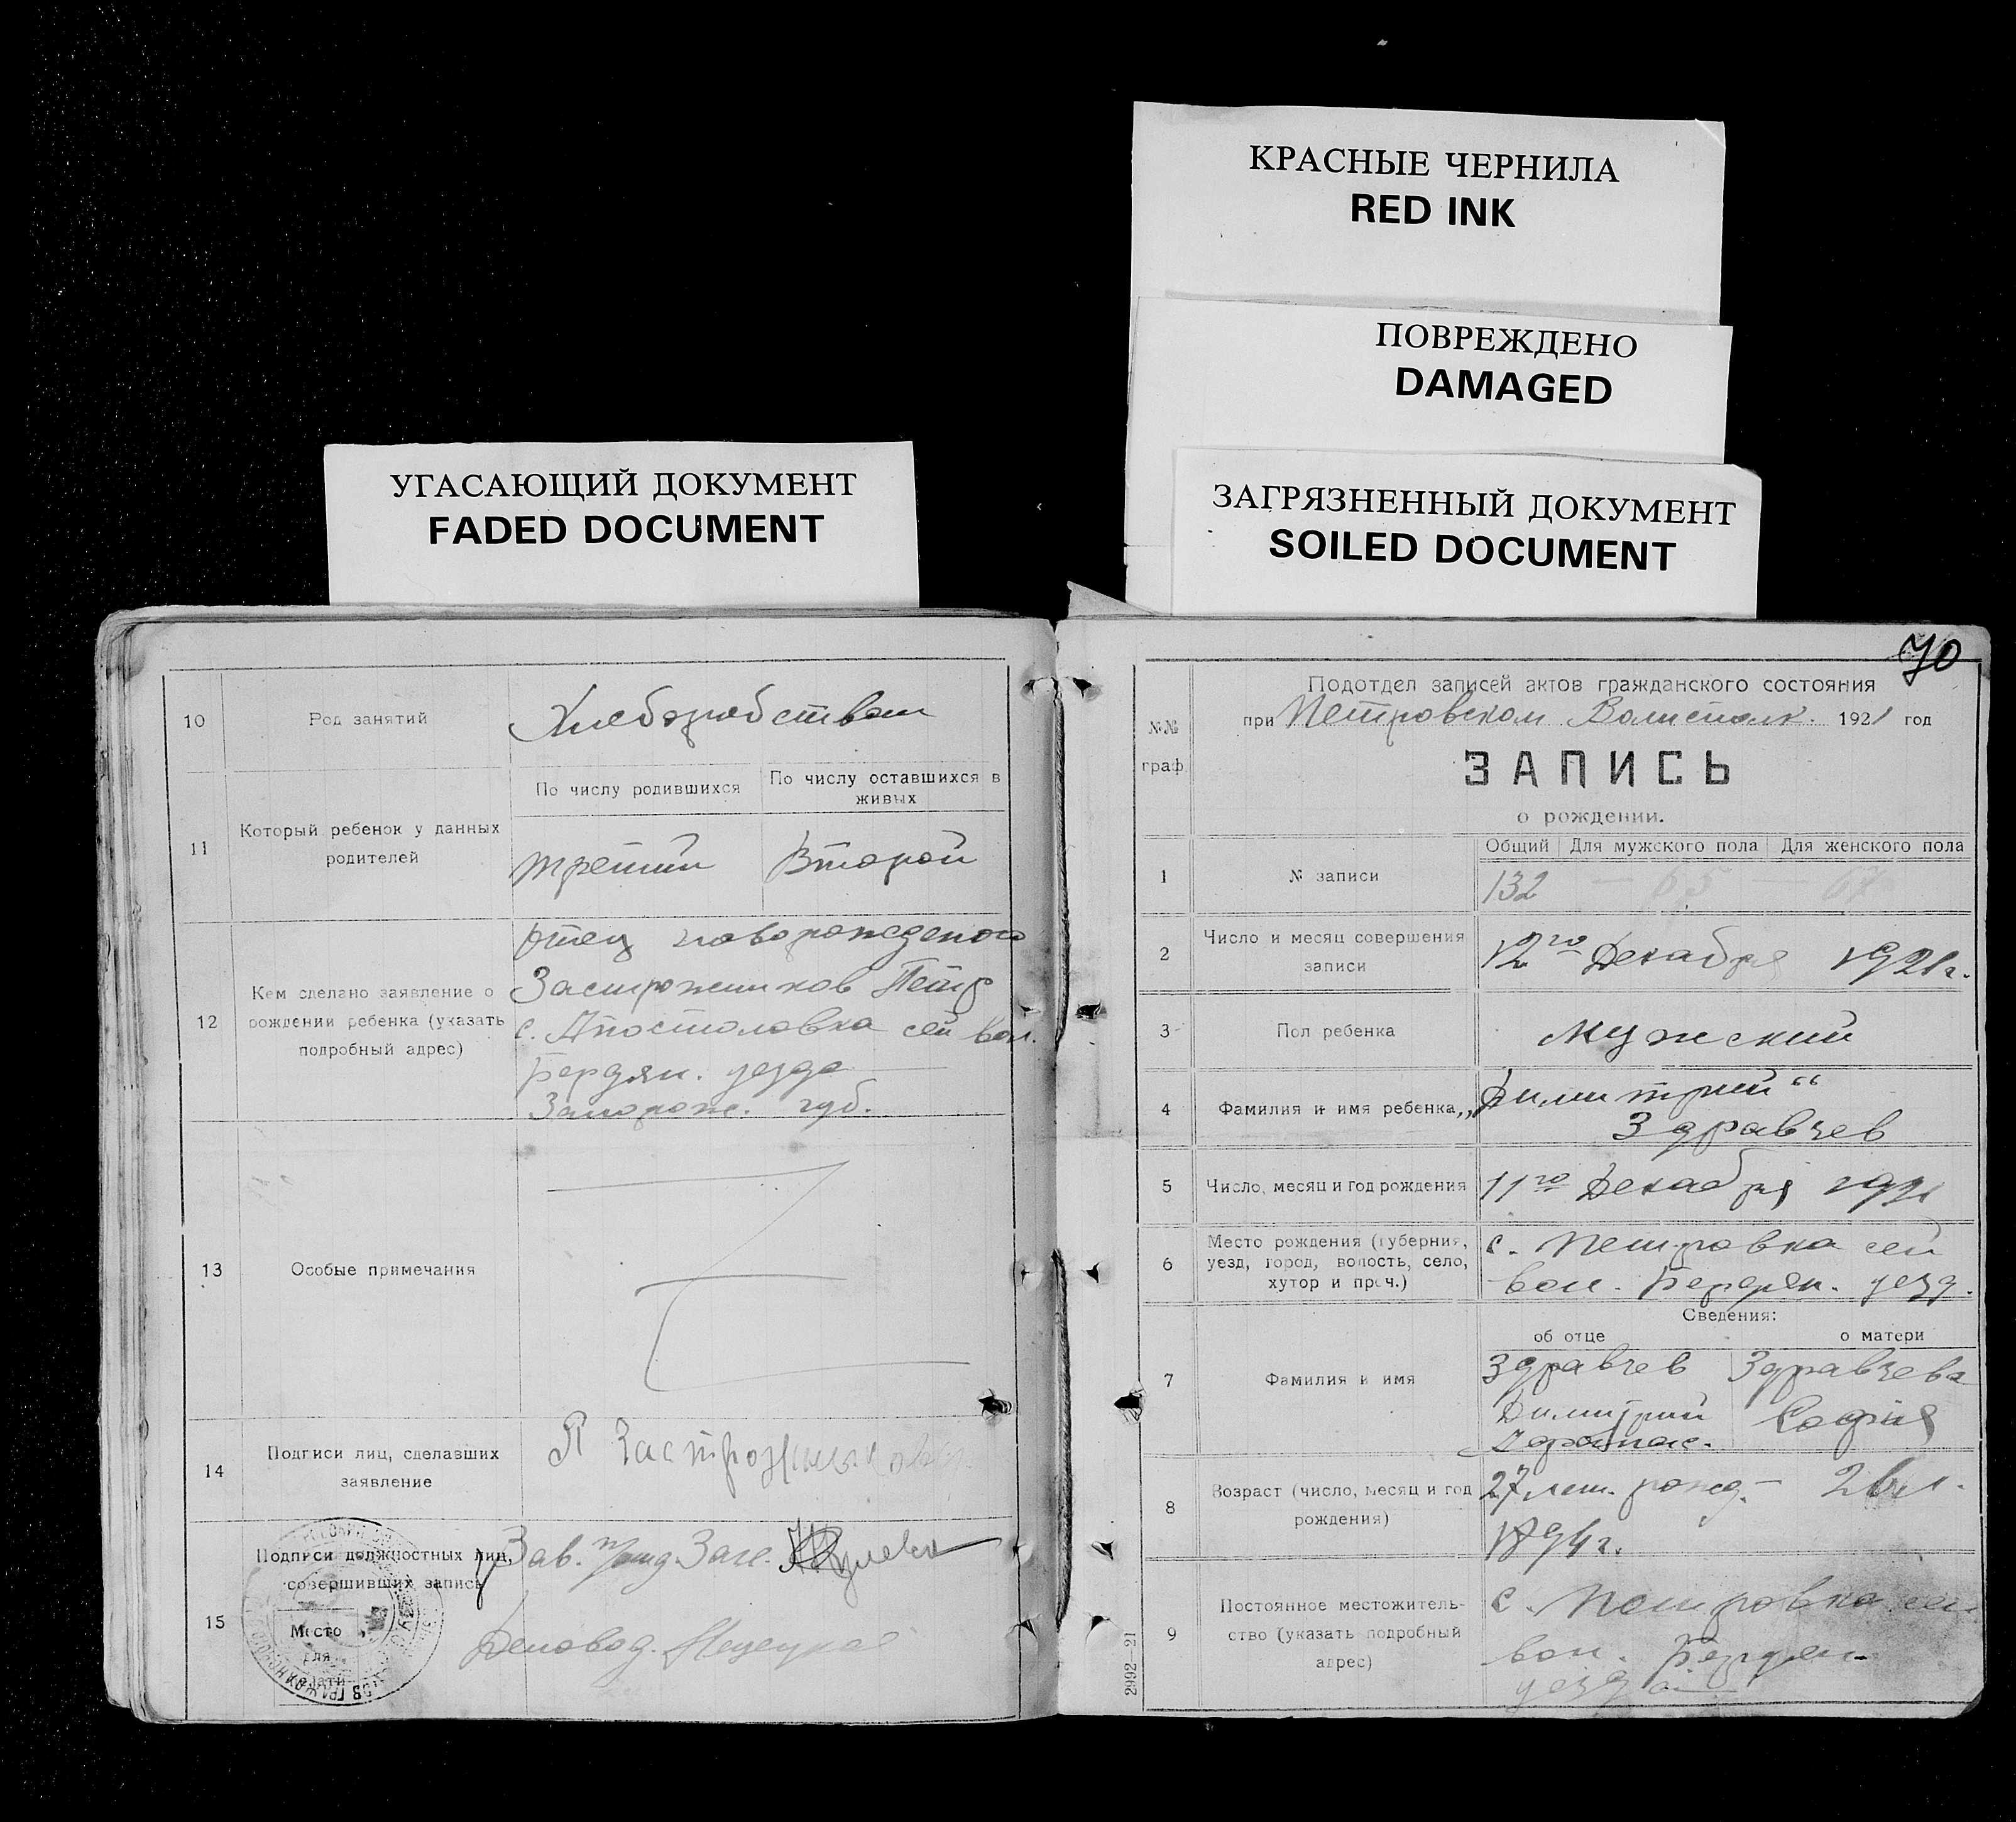 КРАСНЫЕ ЧЕРНИЛА
RED INK
ПОВРЕЖДЕНО
DAMAGED
УГАСАЮЩИЙ ДОКУМЕНТ
FADED DOCUMENT
ЗАГРЯЗНЕННЫЙ ДОКУМЕНТ
SOILED DOCUMENT
10
Род занятий
Хлеборобством
11
Который ребенок у данных
родителей
По числу родившихся
По числу оставшихся в
живых
третий
Второй
12
Кем сделано заявление о
рождении ребенка (указать
подробный адрес)
Отец новорожденого
Застрожников Петр
с. Апостоловка сей вол.
Бердян. уезда
Запорож. губ.
13
Особые примечания
14
Подписи лиц, сделавших
заявление
П Застрожников
15
Подписи должностных лиц,
совершивших запись
Место
для
печати
Зав.
Деловод.
70
№№
граф.
Подотдел записей актов гражданского состояния
при Петровском Волисполк. 1921 год
ЗАПИСЬ
о рождении.
Общий
Для мужского пола
Для женского пола
1
№ записи
132 — 65 — 67
2
Число и месяц совершения
записи
12го Декабря 1921г.
3
Пол ребенка
Мужский
4
Фамилия и имя ребенка
„Димитрий“
Здравчев
5
Число, месяц и год рождения
11го Декабря 1921
6
Место рождения (губерния,
уезд, город, волость, село,
хутор и проч.)
с. Петровка сей
вол. Бердян. уезд.
Сведения:
об отце
о матери
7
Фамилия и имя
Здравчев
Димитрий
Здравчева
София
8
Возраст (число, месяц и год
рождения)
27 лет. рожд.
1894г.
26 л.
9
Постоянное местожитель-
ство (указать подробный
адрес)
с. Петровка сей
вол. Бердян.
уезда
2992—21